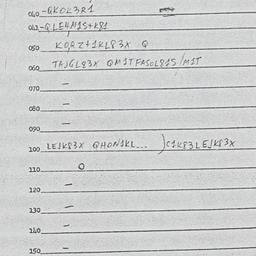 040 -QKOL3R1
041 -QLE4M1S+K81
050 KORZ+1KL83X Q
060 TAJGL83X QM1TFASOL81S/M1T
070 -
080 -
090 -
100 LEJK83X QHON1KL... )C1K83LEJK83X
110 O
120 -
130 -
140 -
150 -